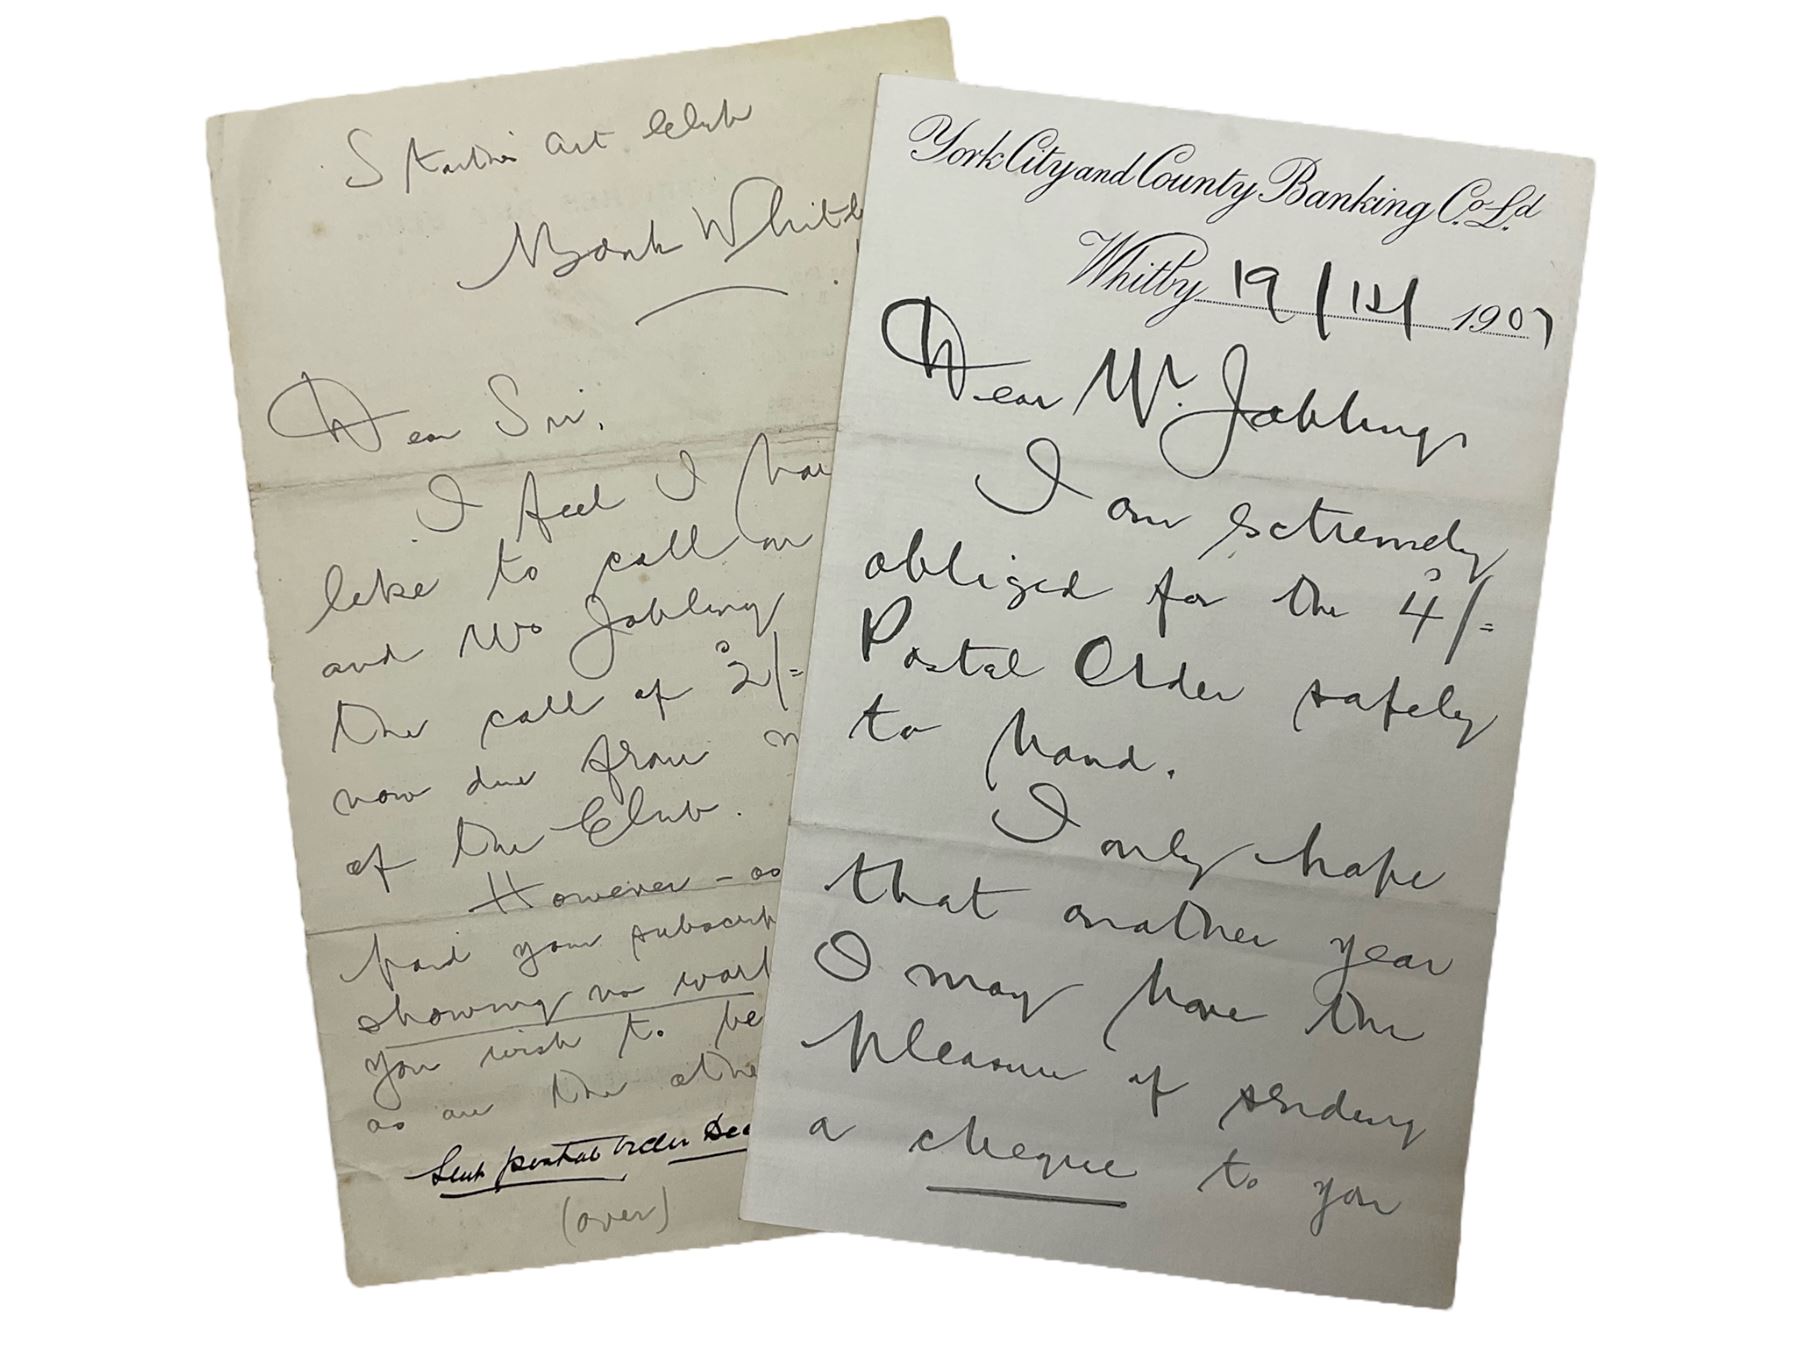 Staithes Art Club
Bank Whitb
Dear Sir,
I feel I hav
like to call on
and Mrs Jobling
the call of 2/=
now due from m
of the Club.
However - as
paid your subscrip
showing no work
you wish to be
as are the othe
Sent postal order Dec
(over)
York City and County Banking Co. Ld.
Whitby 19/12/1907
Dear Mr. Jobling,
I am extremely
obliged for the 4/=
Postal Order safely
to hand.
I only hope
that another year
I may have the
pleasure of sending
a cheque to you